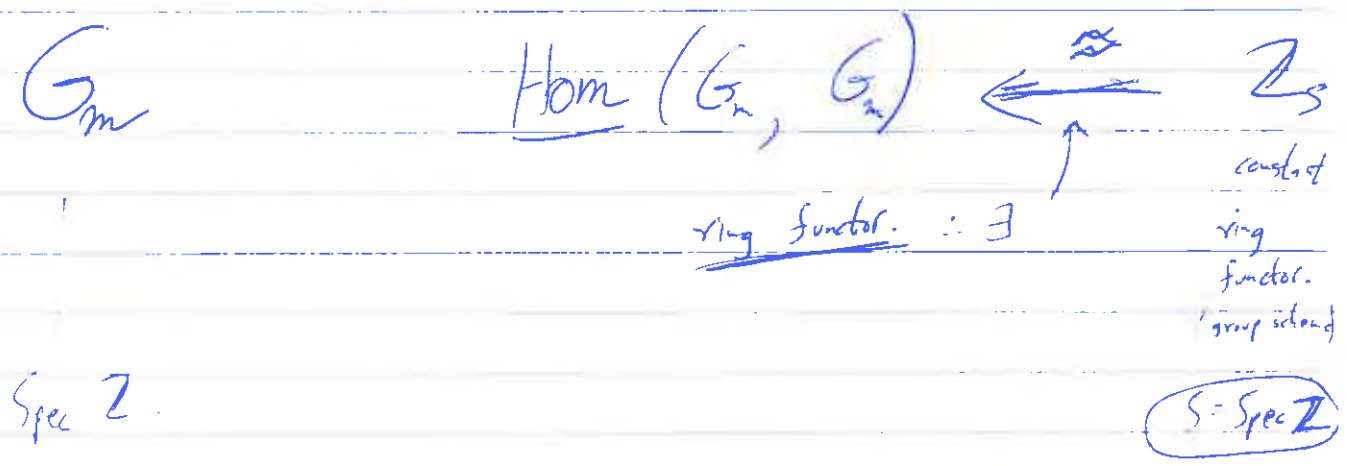 G_m Hom (G_m, G_m) ⟵ ≈ Z_S
constant
ring functor. ∴ ∃ ring
functor.
group scheme
Spec Z. S = Spec Z